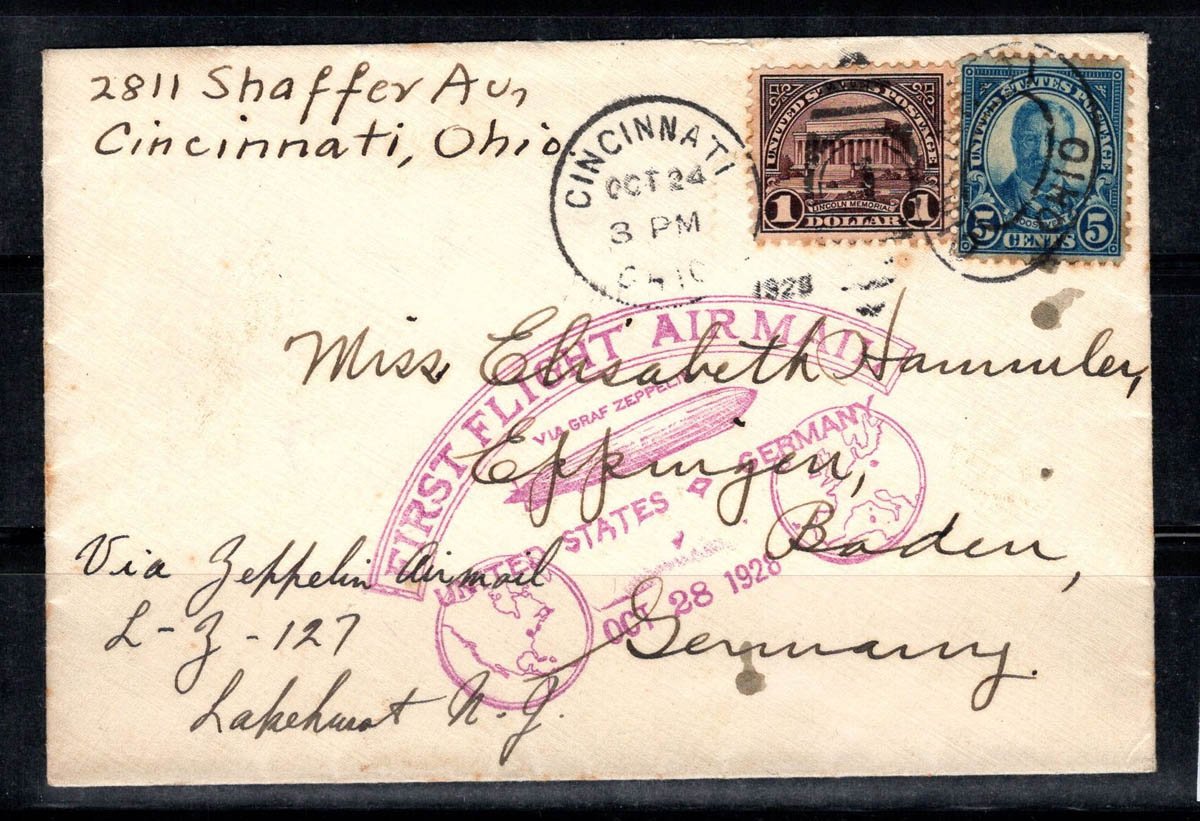 2811 Shaffer Av,
Cincinnati, Ohio
CINCINNATI
OCT 24
3 PM
OHIO
1928
UNITED STATES POSTAGE
LINCOLN MEMORIAL
1 DOLLAR 1
UNITED STATES POSTAGE
5 CENTS 5
OHIO
FIRST FLIGHT AIR MAIL
VIA GRAF ZEPPELIN
UNITED STATES GERMANY
OCT 28 1928
Miss. Elisabeth Hammler,
Eppingen,
Baden,
Germany.
Via Zeppelin Airmail
L-Z-127
Lakehurst N.J.